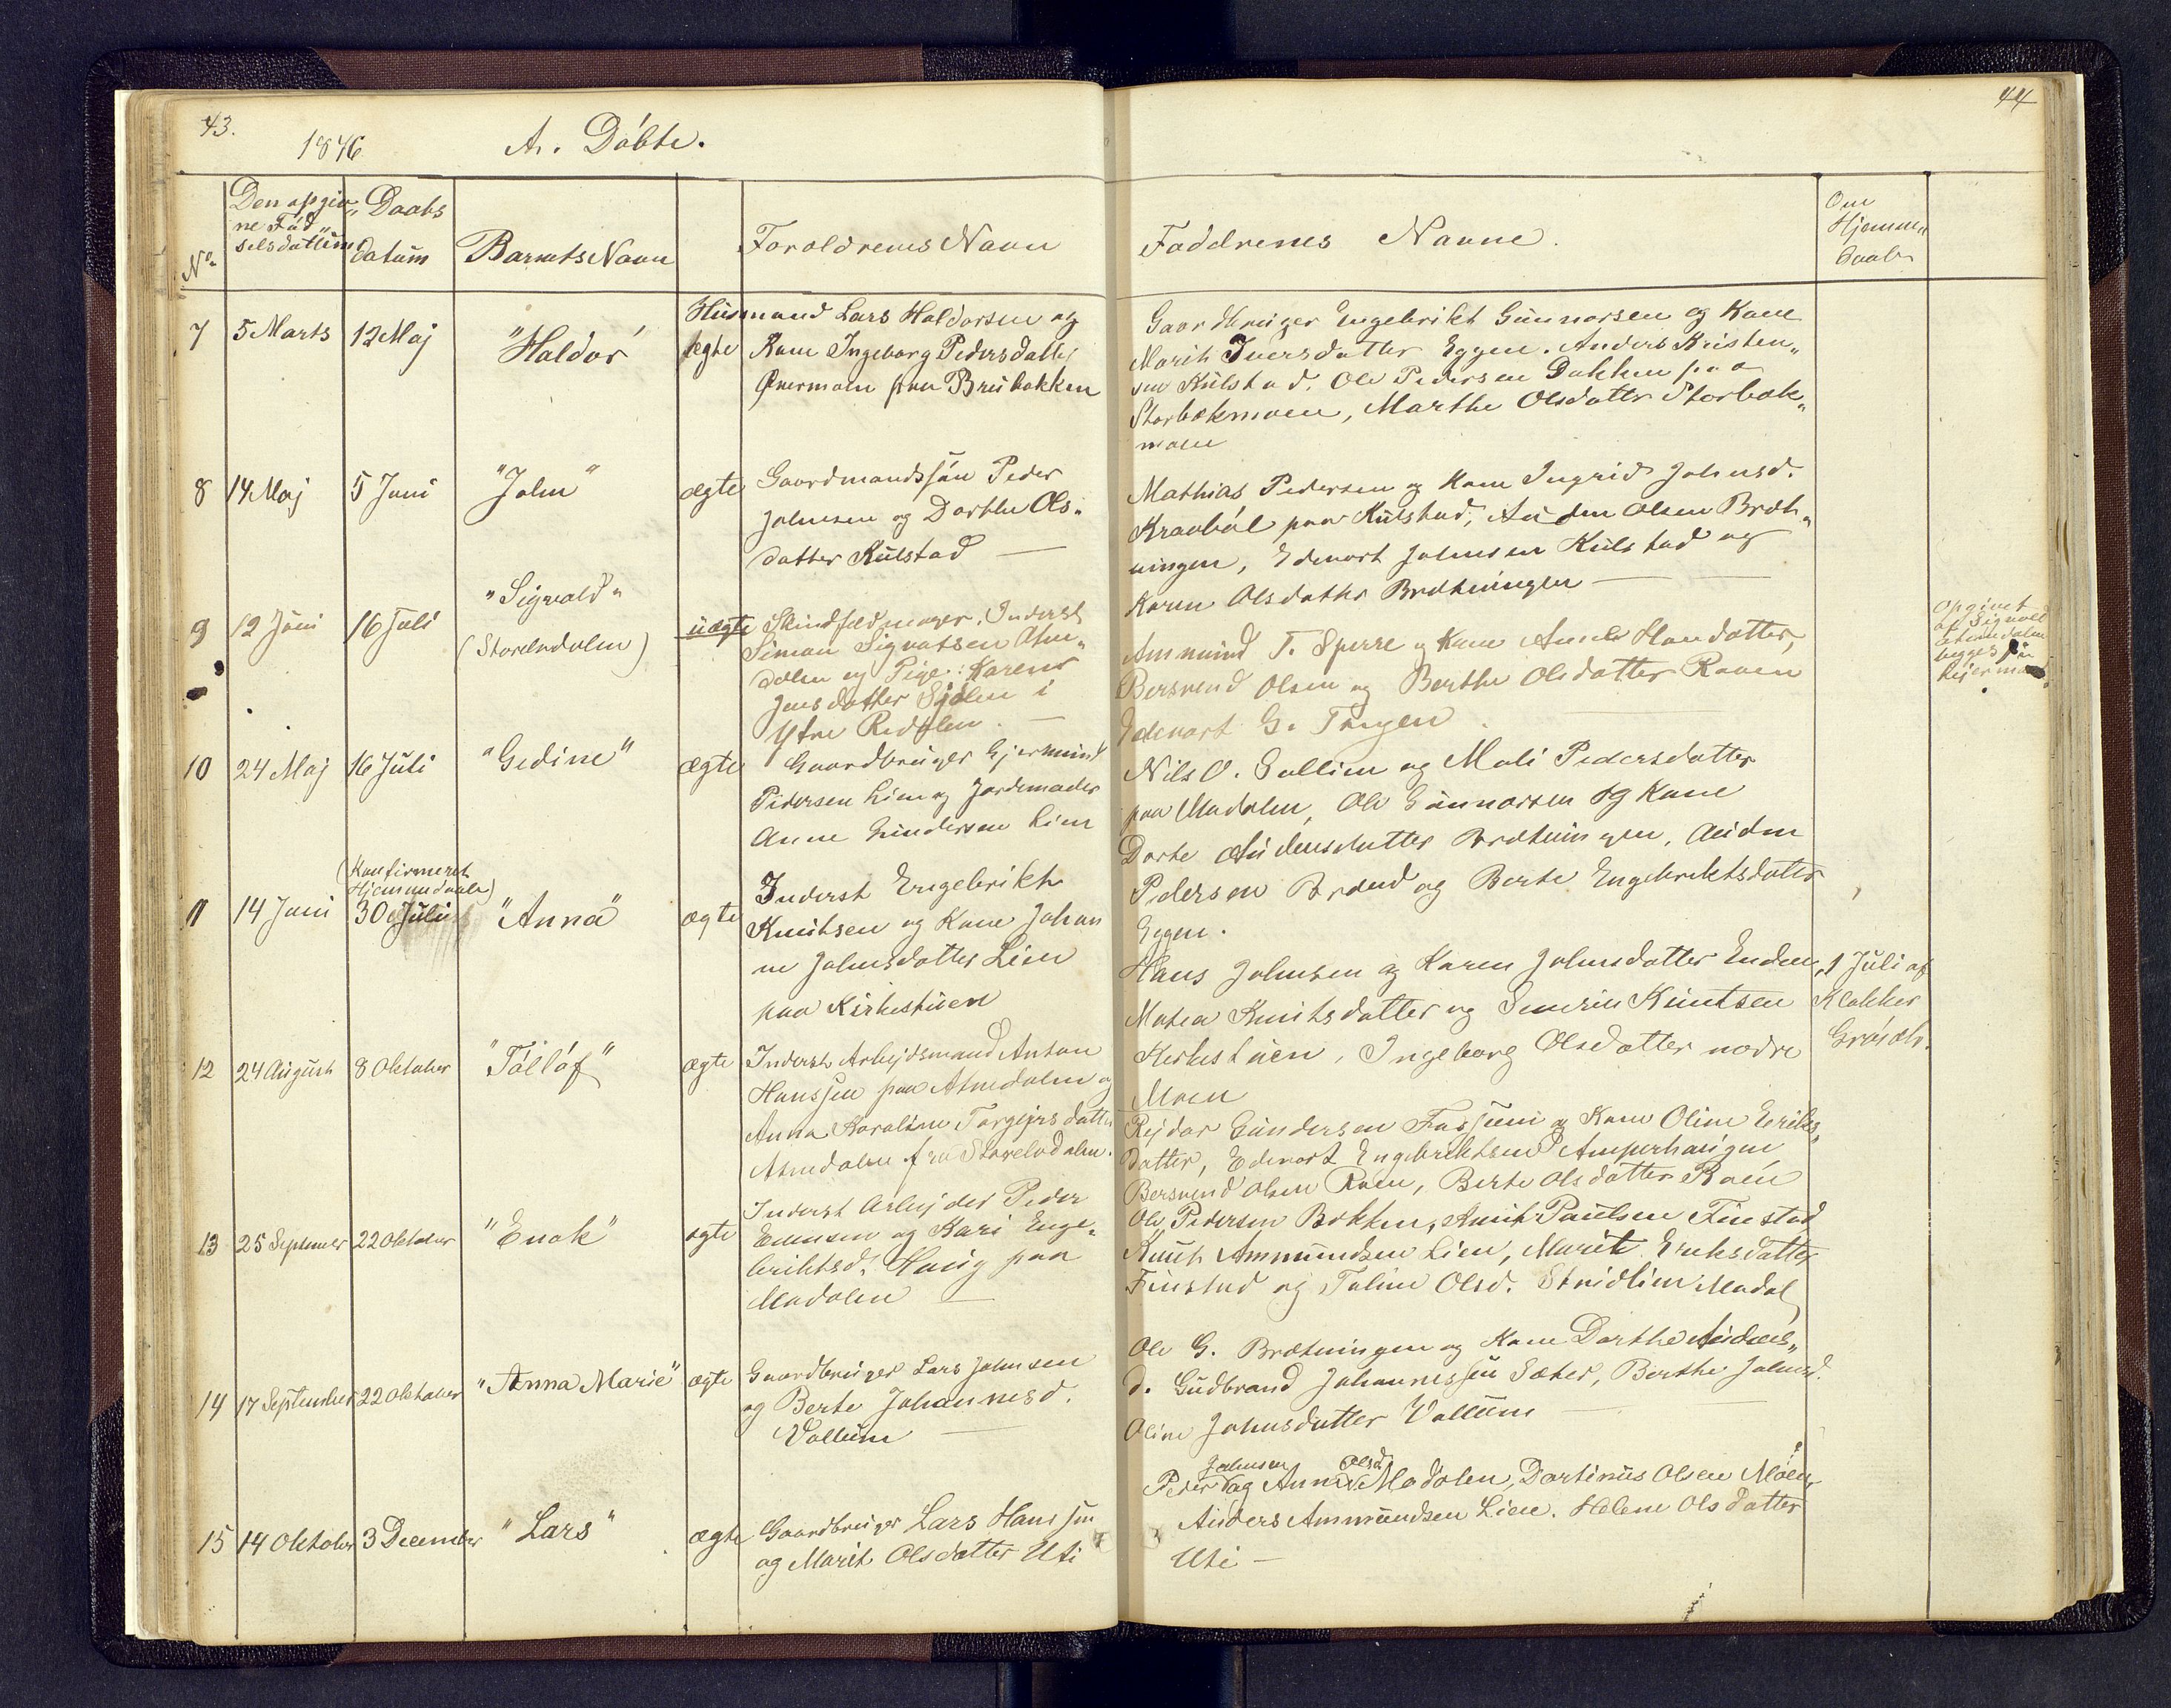 43.
1876
A. Döbte.
44
No
Den opgiv-
ne Föd
selsdatum
Daabs
datum
Barnets Navn
Forældrenes Navn
Faddrenes Navne.
Om
Hjemme
daab
7
5 Marts
12 Maj
"Haldor"
ægte
Husmand Lars Haldorsen og
Kone Ingeborg Pedersdatter
Övermoen paa Brubakken
Gaardbruger Engebrikt Gunnarsen og Kone
Marit Iversdatter Eggen. Anders Kristen-
sen Kulstad. Ole Pedersen Bakken paa
Storbekmoen, Marthe Olsdatter Storbek-
moen
8
14 Maj
5 Juni
"John"
ægte
Gaardmandssön Peder
Johnsen og Dorthe Ols-
datter Kulstad
Mathias Pedersen og Kone Ingrid Johnsd.
Kraaböl paa Kulstad, Auden Olsen Bræt-
ningen, Edevart Johnsen Kulstad og
Karen Olsdatter Brætningen
9
12 Juni
16 Juli
"Sigvald"
(Storelvdalen)
uægte
Skindfeldmager, Inderst
Simon Sigvatsen Atn-
dalen og Pige: Karen
Jensdatter Sjölen i
Ytre Rendalen.
Ammund T. Sperre og Kone Anne Hansdatter,
Bersvend Olsen og Berthe Olsdatter Raaen
Edevart G. Trøen
Opgivet
af Sigvald
Atnedalen
begges
10
24 Maj
16 Juli
"Gedine"
ægte
Gaardbruger Gjermund
Pedersen Lien og Jordemoder
Anne Gundersen Lien
Nils O. Sollien og Mali Pedersdatter
paa Modalen, Ole Gunnarsen og Kone
Dorte Audensdatter Brætningen, Auden
Pedersen Brænd og Berte Engebriktsdatter
Eggen.
(Konfirmeret
Hjemmedaab)
11
14 Juni
30 Juli
"Anna"
ægte
Inderst Engebrikt
Knutsen og Kone Johan
ne Johnsdatter Lien
paa Kirkestuen
Hans Johnsen og Karen Johnsdatter Enden,
Matea Knutsdatter og Simen Knutsen
Kirkestuen, Ingeborg Olsdatter nordre
Moen
1 Juli af
Klokker
12
24 August
8 Oktober
"Tollöf"
ægte
Inderst Arbejdsmand Anton
Hanssen paa Atnedalen og
Anna Karoline Torgejrsdatter
Atnedalen fra Storelvdalen.
Rejdar Gundersen Fossum og Kone Oline Eriks-
datter, Edevart Engebriktsen Amperhaugen
Bersvend Olsen Raaen, Berte Olsdatter Raaen
13
25 September
22 Oktober
"Enok"
ægte
Inderst Arbejder Peder
Evensen og Kari Enge-
briktsd. Haug paa
Modalen
Ole Pedersen Bakken, Amut Paulsen Finstad
Knut Ammundsen Lien, Marit Eriksdatter
Finstad og Taline Olsd. Stridlien Modal
14
17 September
22 Oktober
"Anna Marie"
ægte
Gaardbruger Lars Johnsen
og Berte Johannesd.
Vollum
Ole G. Brætningen og Kone Dorthe Audens-
d. Gudbrand Johannessen Sæter, Berthe Johnsd.
Oline Johnsdatter Vollum
15
14 Oktober
3 December
"Lars"
ægte
Gaardbruger Lars Hanssen
og Marit Olsdatter Uti
Johnsen Olsd.
Peder og Anne Modalen, Dortinus Olsen Moen,
Anders Ammundsen Lien. Helene Olsdatter
Uti